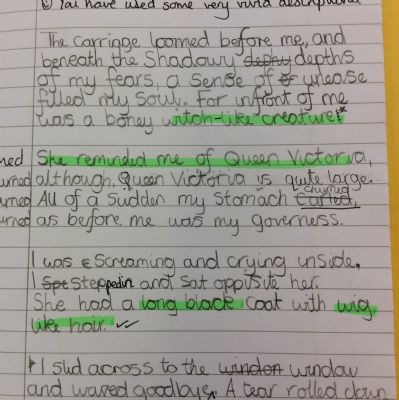 You have used some very vivid descriptions
The carriage loomed before me, and
beneath the shadowy depths
of my fears, a sense of unease
filled my soul. For infront of me
was a boney witch-like creature!*
She reminded me of Queen Victoria,
urned although, Queen Victoria is quite large.
urned All of a sudden my stomach churned,
urned as before me was my governess.
I was screaming and crying inside.
I stepped in and sat opposite her.
She had a long black coat with wig
like hair. ✓
I slid across to the window
and waved goodbye. A tear rolled down